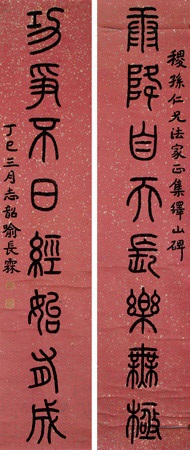 稷孫仁兄法家正集繹山碑
康降自天長樂無極
功爭不日經始有成
丁巳三月志韶喻長霖